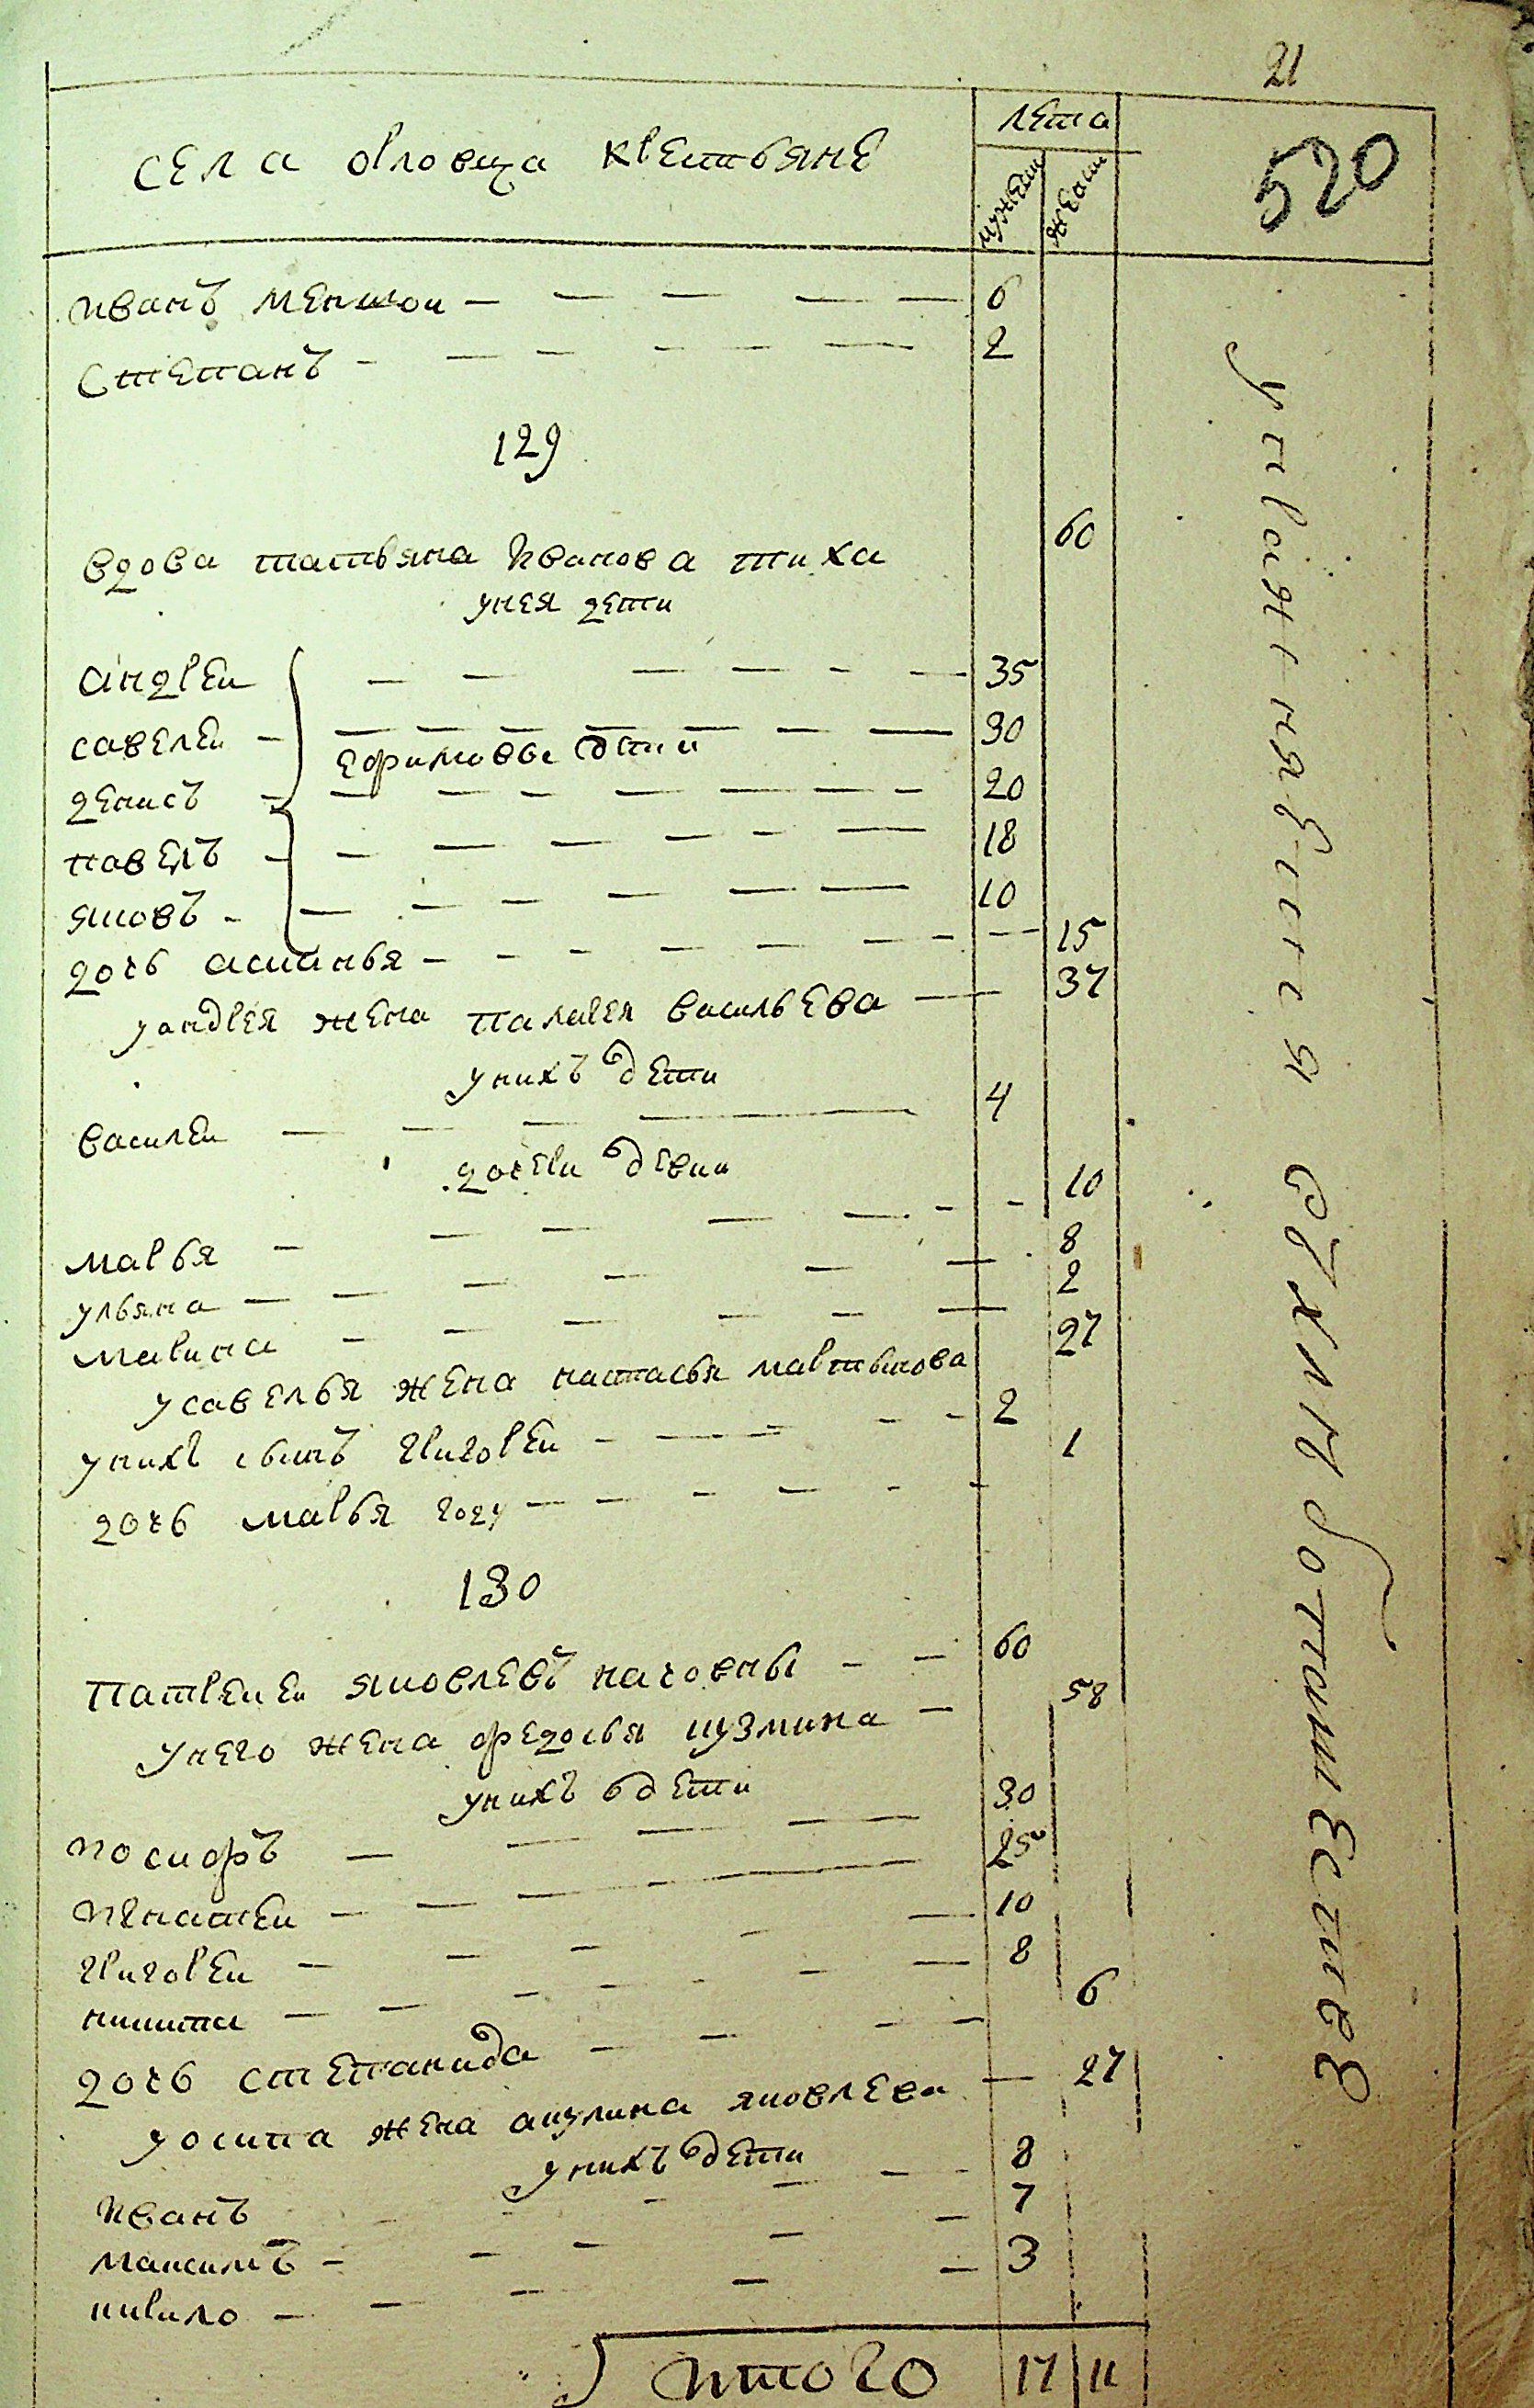 21
520
села орловца крестьяне
лета
мужеск
женск
иванъ меншои 6
степанъ 2
129
вдова татьяна иванова тиха 60
унея дети
андреи 35
савелеи 30
ефимовы дети
денисъ 20
павелъ 18
яковъ 10
дочь аксинья 15
уандрея жена паларея васильева 37
унихъ дети
василеи 4
дочери девки
марья 10
ульяна 8
марина 2
усавелья жена настасья мартынова 27
унихъ сынъ григореи 2
дочь марья году 1
130
патрекеи яковлевъ 60
унего жена федосья кузмина 58
унихъ дети
иосифъ 30
игнатеи 25
григореи 10
никита 8
дочь степанида 6
уосипа жена акулина яковлева 27
унихъ дети
иванъ 8
максимъ 7
кирило 3
итого 17 11